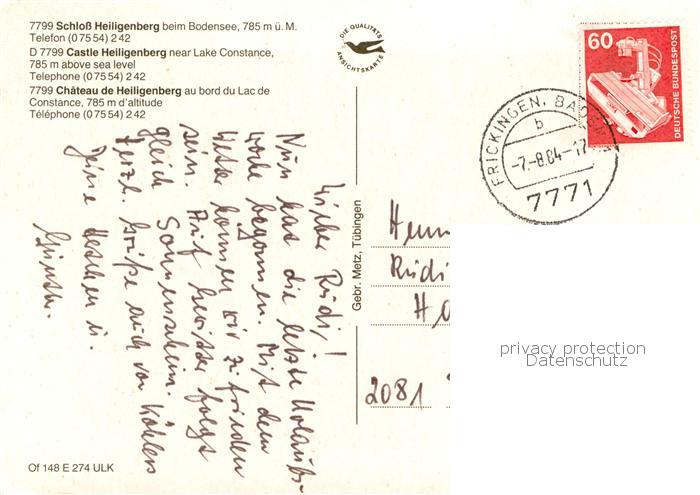 7799 Schloß Heiligenberg beim Bodensee, 785 m ü. M.
Telefon (0 75 54) 2 42
D 7799 Castle Heiligenberg near Lake Constance,
785 m above sea level
Telephone (0 75 54) 2 42
7799 Château de Heiligenberg au bord du Lac de
Constance, 785 m d'altitude
Téléphone (0 75 54) 2 42
DIE QUALITÄTS
ANSICHTSKARTE
60
DEUTSCHE BUNDESPOST
FRICKINGEN, BADEN
b
-7.-8.84-17
7771
Lieber Rüdi!
Nun hat die letzte Urlaubs-
woche begonnen. Mit dem
Wetter können wir zufrieden
sein. Auf Gewitter folgt
gleich Sonnenschein.
Herzl. Grüße auch von Köhlers
Deine u.
Günther.
Gebr. Metz, Tübingen
Herrn
Rüdi
2081
privacy protection
Datenschutz
Of 148 E 274 ULK